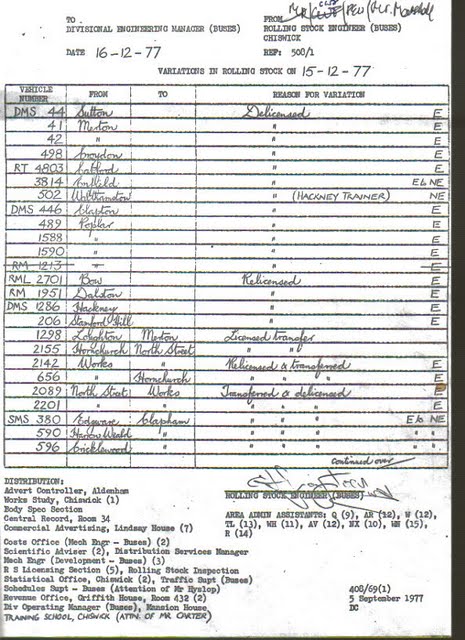 TO : FROM
DIVISIONAL ENGINEERING MANAGER (BUSES) ROLLING STOCK ENGINEER (BUSES)
CHISWICK
DATE 16-12-77 REF: 500/1
VARIATIONS IN ROLLING STOCK ON 15-12-77
VEHICLE NUMBER FROM TO REASON FOR VARIATION
DMS 44 Sutton Delicensed E
41 Merton " E
42 " " E
498 Croydon " E
RT 4803 Catford " E
3814 Enfield " E to NE
502 Walthamstow " (HACKNEY TRAINER) NE
DMS 446 Clapton " E
489 Poplar " E
1588 " " E
1590 " " E
RM 1213 " " E
RML 2701 Bow Relicensed E
RM 1951 Dalston " E
DMS 1286 Hackney " E
206 Stamford Hill " E
1298 Loughton Merton Licensed transfer
2155 Hornchurch North Street " "
2142 Works " Relicensed & transferred E
656 " Hornchurch " " " E
2089 North Street Works Transferred & delicensed E
2201 " " " " " E
SMS 380 Edgware Clapham " " " E to NE
590 Harrow Weald " " " " " "
596 Cricklewood " " " " " "
continued over
DISTRIBUTION:
Advert Controller, Aldenham
Works Study, Chiswick (1)
Body Spec Section
Central Record, Room 34
Commercial Advertising, Lindsay House (7)
Costs Office (Mech Engr - Buses) (2)
Scientific Adviser (2), Distribution Services Manager
Mech Engr (Development - Buses) (3)
R S Licensing Section (5), Rolling Stock Inspection
Statistical Office, Chiswick (2), Traffic Supt (Buses)
Schedules Supt - Buses (Attention of Mr Hyslop)
Revenue Office, Griffith House, Room 432 (2)
Div Operating Manager (Buses), Mansion House
TRAINING SCHOOL, CHISWICK (ATTN. OF MR CARTER)
ROLLING STOCK ENGINEER (BUSES)
AREA ADMIN ASSISTANTS: Q (9), AR (12), W (12),
TL (13), WH (11), AV (12), NX (10), WN (15),
R (14)
408/69(1)
5 September 1977
DC